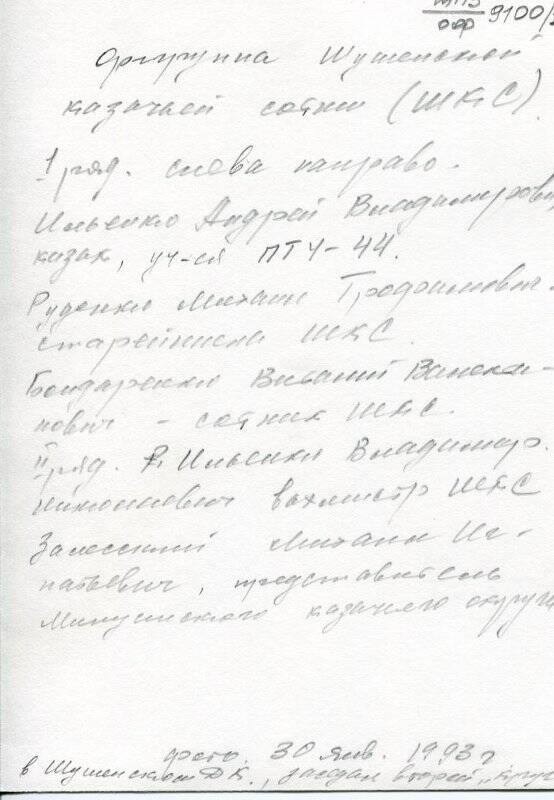 9100/
оф
группа Шушенской
казачьей сотни (ШКС).
I ряд. слева направо.
Ильенко Андрей Владимирович
казак, уч-ся ПТУ-44.
Руденко Михаил Трофимович
старейшина ШКС.
Бондаренко Виталий
нович - сотник ШКС.
II ряд. Ильенко Владимир
Николаевич вахмистр ШКС
Залесский Михаил Иг-
натьевич, представитель
Минусинского казачьего округа
фото. 30 янв. 1993 г
в Шушенском ДК., второй